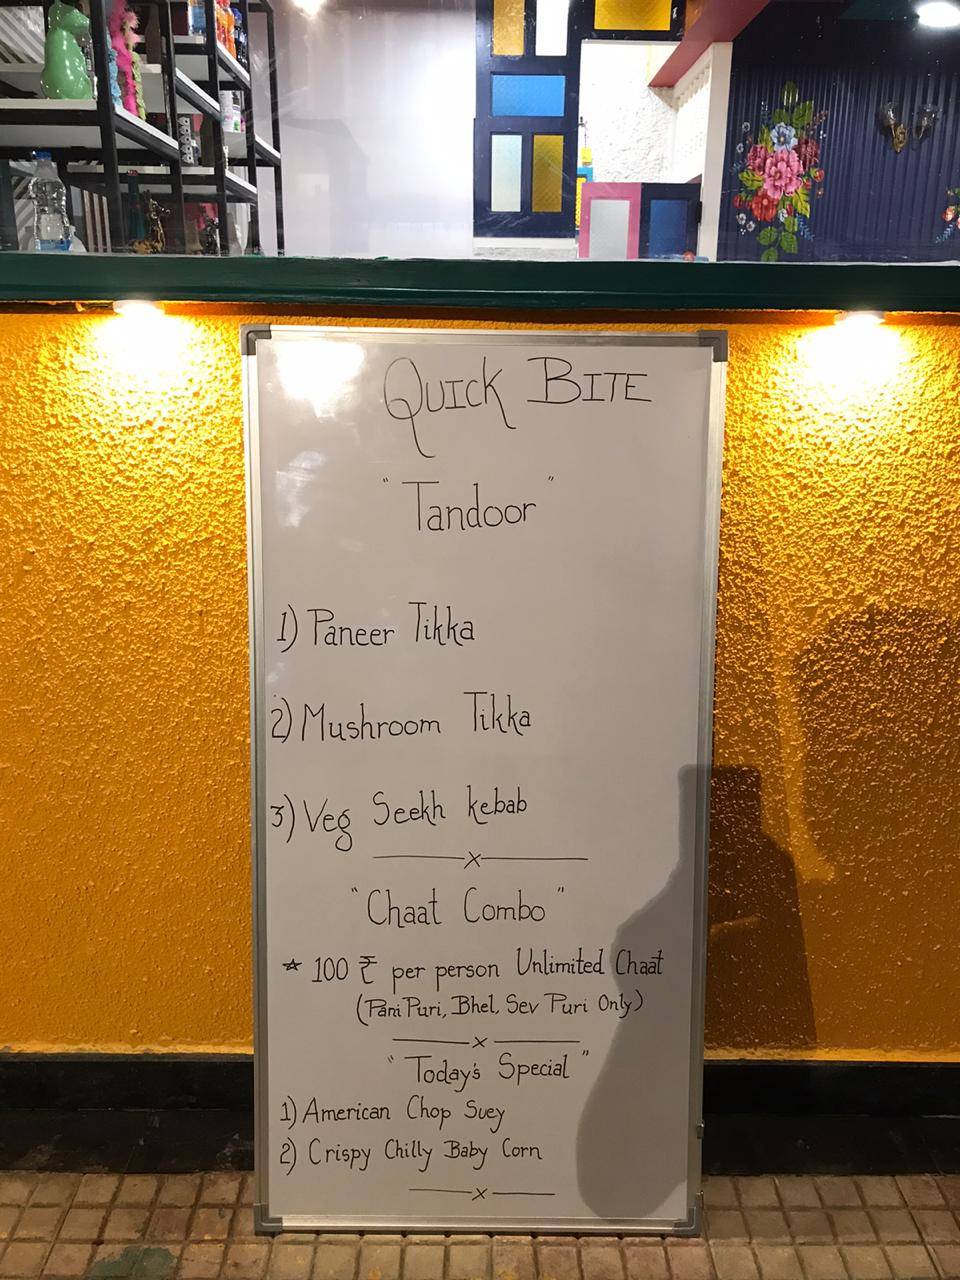 QUICK BITE
"Tandoor"
1) Paneer Tikka
2) Mushroom Tikka
3) Veg Seekh kebab
"Chaat Combo"
* 100 ₹ per person Unlimited Chaat
(Pani Puri, Bhel, Sev Puri Only)
"Today's Special"
1) American Chop Suey
2) Crispy Chilly Baby Corn